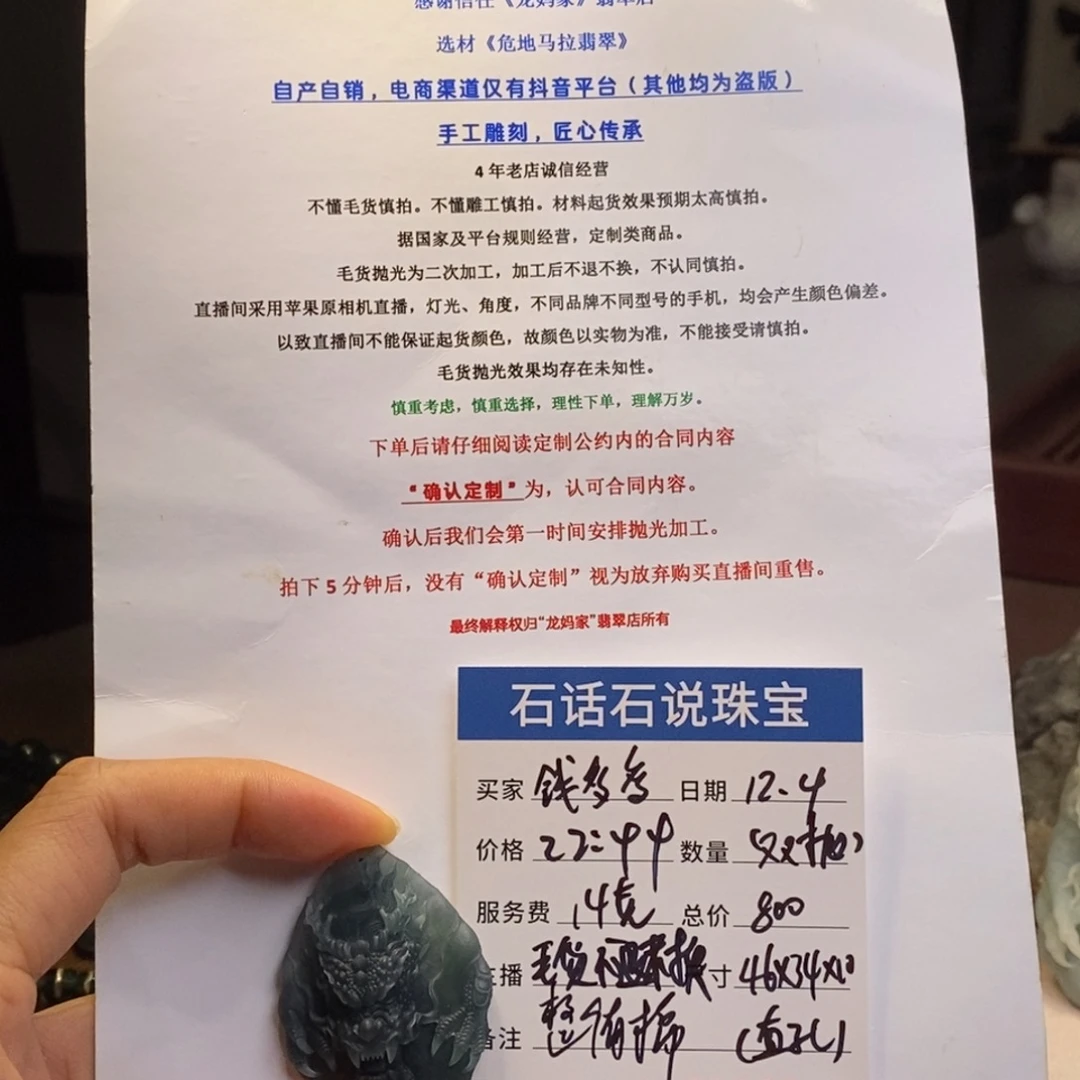 感谢信任《龙妈家》翡翠店
选材《危地马拉翡翠》
自产自销，电商渠道仅有抖音平台（其他均为盗版）
手工雕刻，匠心传承
4年老店诚信经营
不懂毛货慎拍。不懂雕工慎拍。材料起货效果预期太高慎拍。
据国家及平台规则经营，定制类商品。
毛货抛光为二次加工，加工后不退不换，不认同慎拍。
直播间采用苹果原相机直播，灯光、角度，不同品牌不同型号的手机，均会产生颜色偏差。
以致直播间不能保证起货颜色，故颜色以实物为准，不能接受请慎拍。
毛货抛光效果均存在未知性。
慎重考虑，慎重选择，理性下单，理解万岁。
下单后请仔细阅读定制公约内的合同内容
“确认定制”为，认可合同内容。
确认后我们会第一时间安排抛光加工。
拍下5分钟后，没有“确认定制”视为放弃购买直播间重售。
最终解释权归“龙妈家”翡翠店所有
石话石说珠宝
买家 钱多多 日期 12.4
价格 22:44 数量
服务费 14克 总价 800
主播 毛货不退换 寸 46x34x10
备注 (直孔)